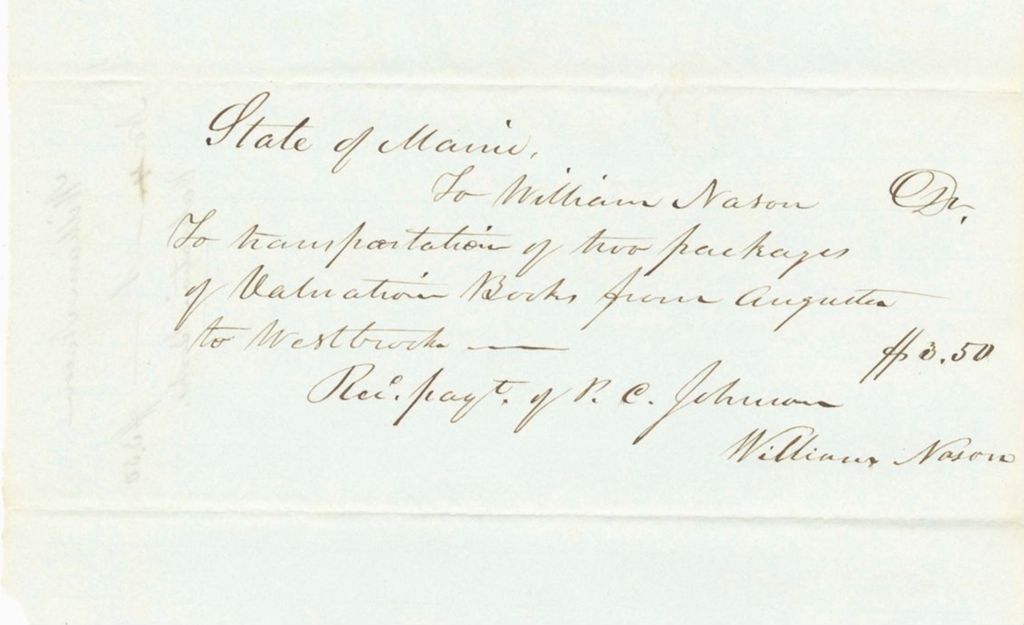 State of Maine,
To William Nason Dr.
To transportation of two packages
of Valuation Books from Augusta
to Westbrook —
$3.50
Recd. payt. of P. C. Johnson
William Nason